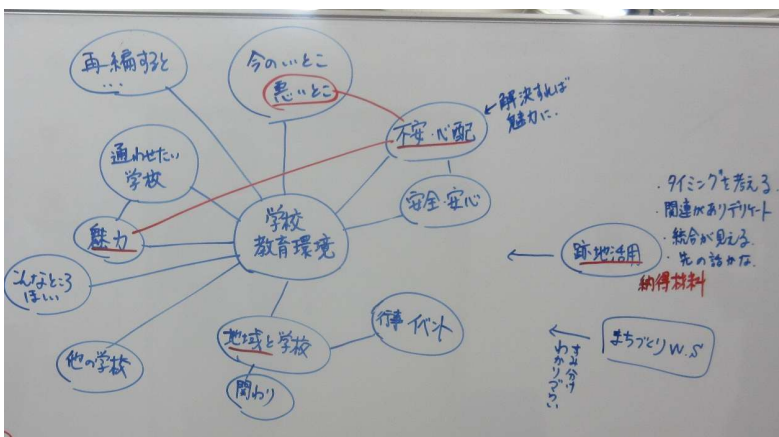 再編すると
…
今のいいとこ
悪いとこ
不安・心配
←解決すれば
魅力に.
通わせたい
学校
安全・安心
魅力
学校
教育環境
こんなところ
ほしい
他の学校
地域と学校
関わり
行事・イベント
←
跡地活用
・タイミングを考える
・関連がありデリケート
・統合が見える.
・先の話かな.
納得材料
←
すみ分け
わかりづらい
まちづくりW.S